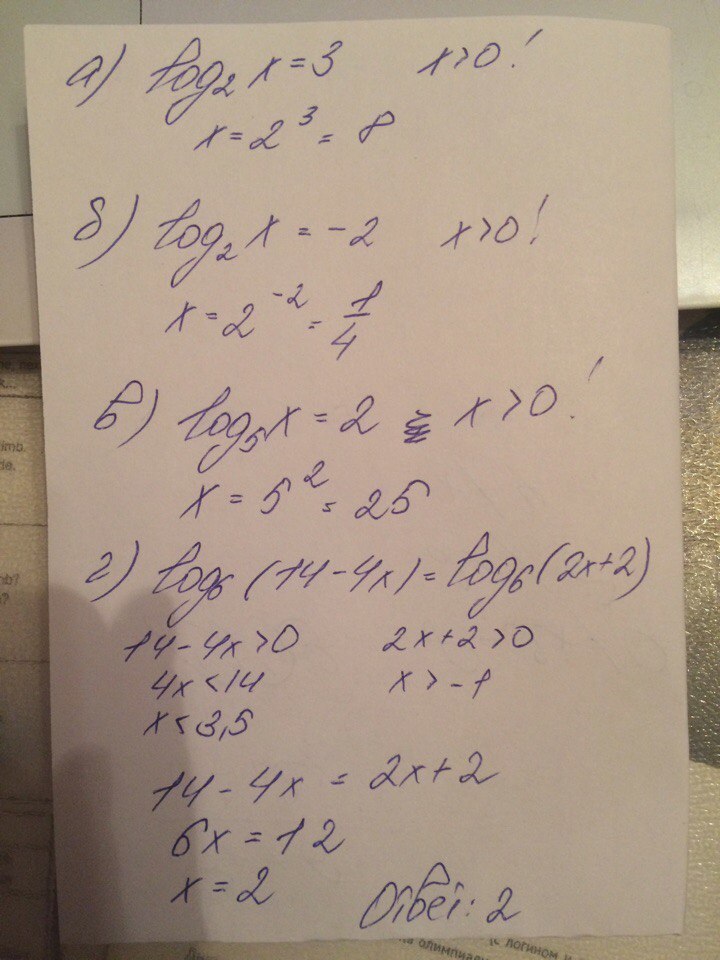 а) log₂ x = 3 x>0!
x = 2³ = 8
б) log₂ x = -2 x>0!
x = 2⁻² = 1/4
в) log₅ x = 2 x>0!
x = 5² = 25
г) log₆ (14-4x) = log₆ (2x+2)
14-4x>0 2x+2>0
4x<14 x>-1
x<3,5
14-4x = 2x+2
6x = 12
x = 2
Ответ: 2
(с логином и
на олимпиа